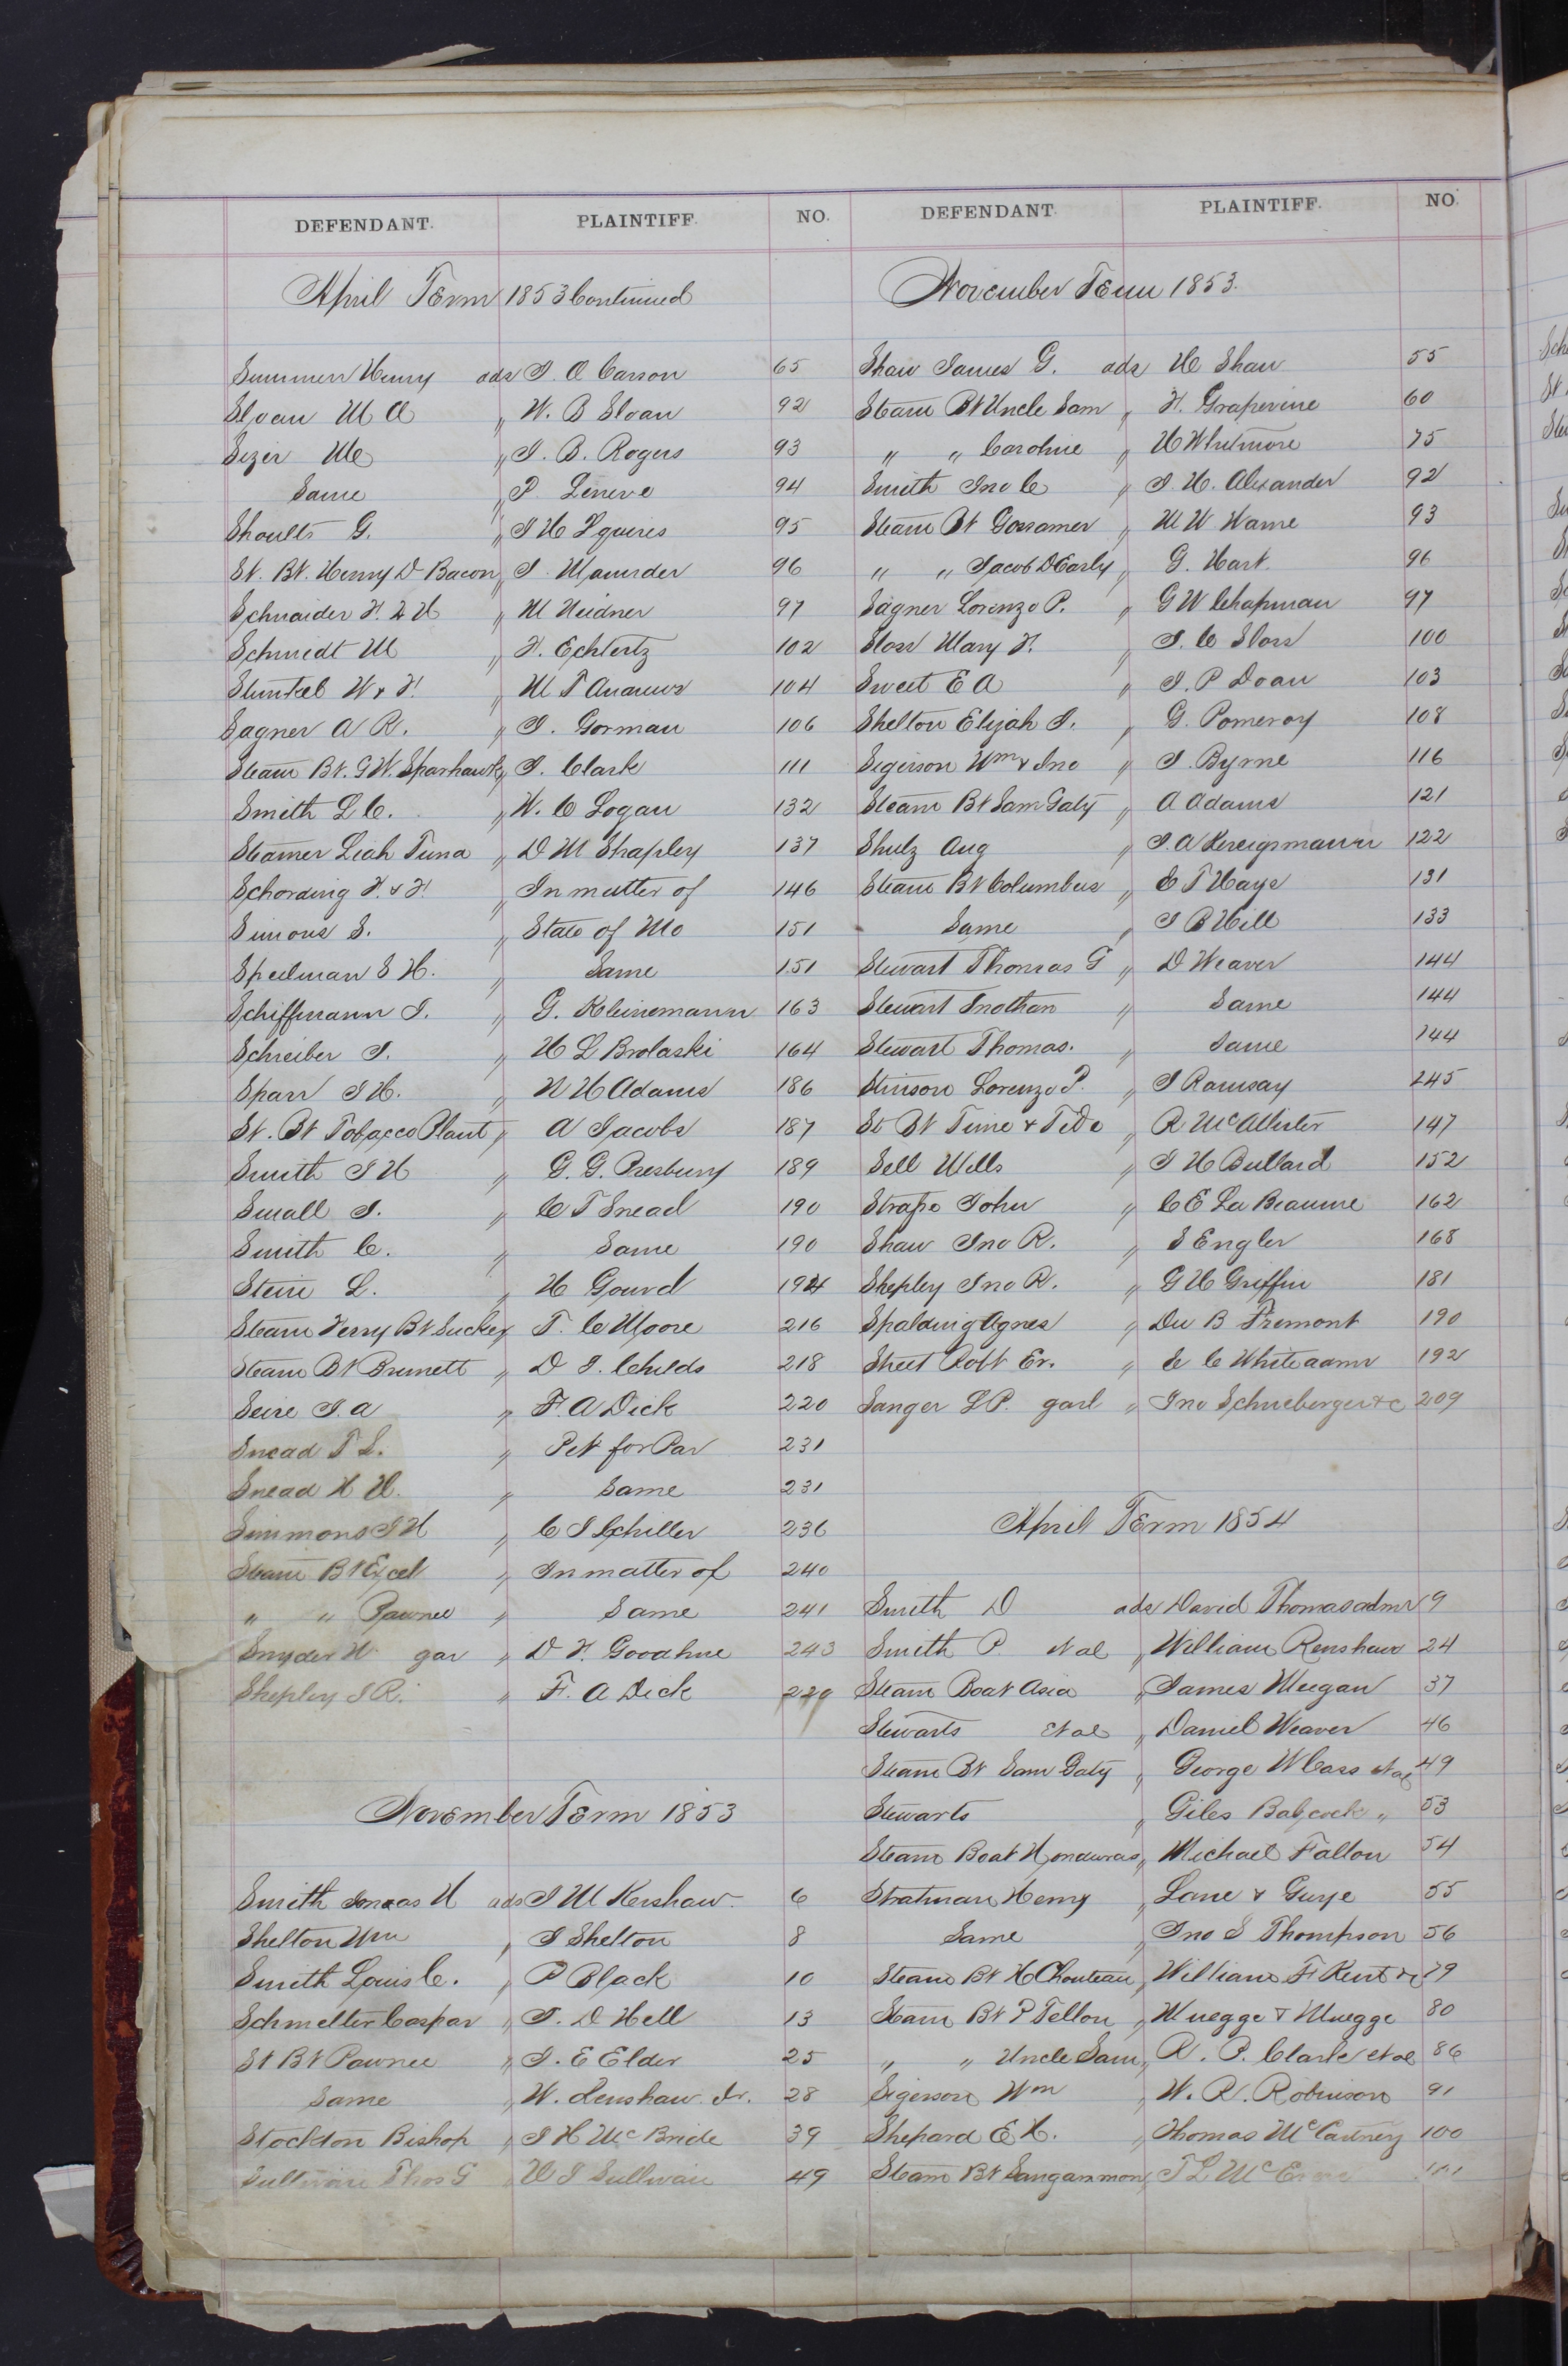 DEFENDANT. PLAINTIFF. NO.
April Term 1853 Continued
Summers Henry ads J. A Carson 65
Sloan M A " W. B Sloan 92
Sizer M " J. B. Rogers 93
Same " P. Leneve 94
Shoults G. " J H Squires 95
St. Bt. Henry D Bacon " J. Maunder 96
Schnaider F. & H " M Neidner 97
Schmidt M " F. Echlertz 102
Stunkel W & F. " M T Andrews 104
Sagner A R. " J. Gorman 106
Steam Bt. G W. Sparhawk " J. Clark 111
Smith L C. " W. C Logan 132
Steamer Leah Tuna " D M Shapley 137
Schording F. & F. " In matter of 146
Simons S. " State of Mo 151
Speilman S H. " Same 151
Schiffmann J. " G. Kleinemann 163
Schreiber J. " H L Brolaski 164
Sparr J H. " N H Adams 186
St. Bt Tobacco Plant " A Jacobs 187
Smith J H " G. G. Presbury 189
Small J. " C T Snead 190
Smith C. " Same 190
Stein L. " H Gourd 194
Steam Ferry Bt Sucker " T. C Moore 216
Steam Bt Brunett " D J. Childs 218
Seire J. A " F. A Dick 220
Snead T L. " Pet for Par 231
Snead H H. " Same 231
Simmons J H " C J Schiller 236
Steam Bt Excel " In matter of 240
" " Pawnee " Same 241
Snyder W. gar " D F. Goodhue 243
Shepley J R. " F. A Dick 220
November Term 1853
Smith Jonas H ads J M Kershaw 6
Shelton Wm " J Shelton 8
Smith Louis C. " P Black 10
Schmelter Caspar " J. D Hell 13
St Bt Pawnee " J. E Elder 25
Same " W. Renshaw Jr. 28
Stockton Bishop " J H McBride 39
Sullivan Thos G " W J Sullivan 49
DEFENDANT. PLAINTIFF. NO.
November Term 1853.
Shaw James G. ads H Shaw 55
Steam Bt Uncle Sam " F. Grapevine 60
" " Caroline " H Whitmore 75
Smith Jno C " J. H. Alexander 92
Steam Bt Gossamer " M W Warne 93
" " Jacob D Early " G. Hart. 96
Sagner Lorenzo P. " G W Chapman 97
Sloss Mary F. " J. C Sloss 100
Sweet E A " J. P Doan 103
Shelton Elijah J. " G. Pomeroy 108
Sigerson Wm & Jno " J. Byrne 116
Steam Bt Sam Gaty " A Adams 121
Shulz Aug " J. A 122
Steam Bt Columbus " E T Hays 131
Same " J B Hill 133
Stewart Thomas G " D Weaver 144
Stewart Jnothan " Same 144
Stewart Thomas. " Same 144
Stinson Lorenzo P. " J Ramsay 245
St Bt Time & Tide " R McAllister 147
Sell Wells " J H Bullard 152
Strape John " C E La Beaume 162
Shaw Jno R. " S Engler 168
Shepley Jno R. " G H Griffin 181
Spalding Agnes " Du B Fremont 190
Street Robt Er. " E C White admr 192
Sanger L P. garl " Jno Schneeberger & c 209
April Term 1854
Smith D ads David Thomas admr 9
Smith P. et al " William Renshaw 24
Steam Boat Asia " James Meegan 37
Stewarts et al " Daniel Weaver 46
Steam Bt Sam Gaty " George W Cass et al 49
Stewarts " Giles Babcock " 53
Steam Boat Honduras " Michael Fallon 54
Stratman Henry " Lane & Guye 55
Same " Jno S Thompson 56
Steam Bt H Chouteau " William F Kent & c 79
Steam Bt P Tellon " Muegge & Muegge 80
" " Uncle Sam " R. P. Clark et al 86
Sigerson Wm " W. R. Robinson 91
Shepard E H. " Thomas McCartney 100
Steam Bt Sangammon " T L 101